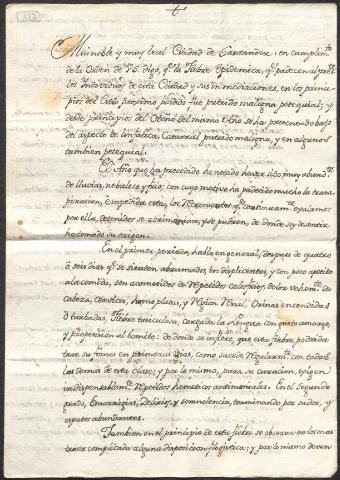 (312)
Mui noble y muy leal Ciudad de Santander: en cumplim.to
de la Orden de VS. digo, q.e la Fiebre Epidemica, q.e padecen al pres.te
los Individuos de esta Ciudad y sus inmediaciones, en los princi-
pios del Estio proximo pasado fue putrido maligna petequial; y
desde principios de Otoño del mismo Año se ha presentado bajo
del aspecto de linfatica, Catarral putrido maligna, y en algunos
tambien petequial.
El Año que ha precedido he notado haver sido muy abund.te
de lluvias, nebuloso y frio; con cuyo motivo ha padecido mucho la trans-
piracion; impedida esta, los q.e continuam.te exalamos
por ella, detenidos se acrimonian, y se pudren, de donde soy de sentir
ha tomado su origen.
En el primer periodo, hablo en general, despues de quatro
ó seis dias q.e se sienten abrumados, indisplicentes, y con poco apetito
a la comida, son acometidos de repetidos calosfrios, dolor vehem.te de
cabeza, cervices, homoplatas, y Region Renal, Orinas encendidas
ó turbadas, Fiebre cargada la lengua con gusto amargo,
y propension al bomito: de donde se infiere, que esta fiebre podrida
trae su fomes en primeras Vias, como sucede Regularm.te con todas
las demas de esta clase; y por lo mismo, para su curacion, exigen
indispensablem.te Repetidos hemeticos antimoniales. En el segundo
grado, Emorragias, Delirio, y somnolencia, terminando por sudor, y
esputos abundantes.
Tambien en el principio de esta fiebre se observa en los mas
estar complicada alguna disposicion flogistica; y por lo mismo deven